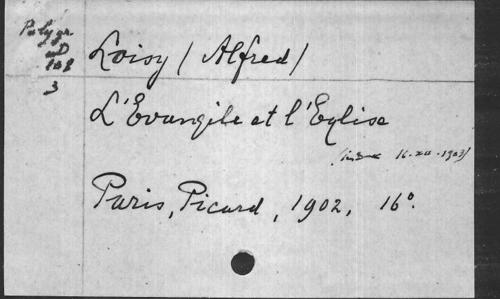 Polygr.
3
Loisy (Alfred)
L'Evangile et l'Eglise
16-XII-1903)
Paris, Picard, 1902, 16°.